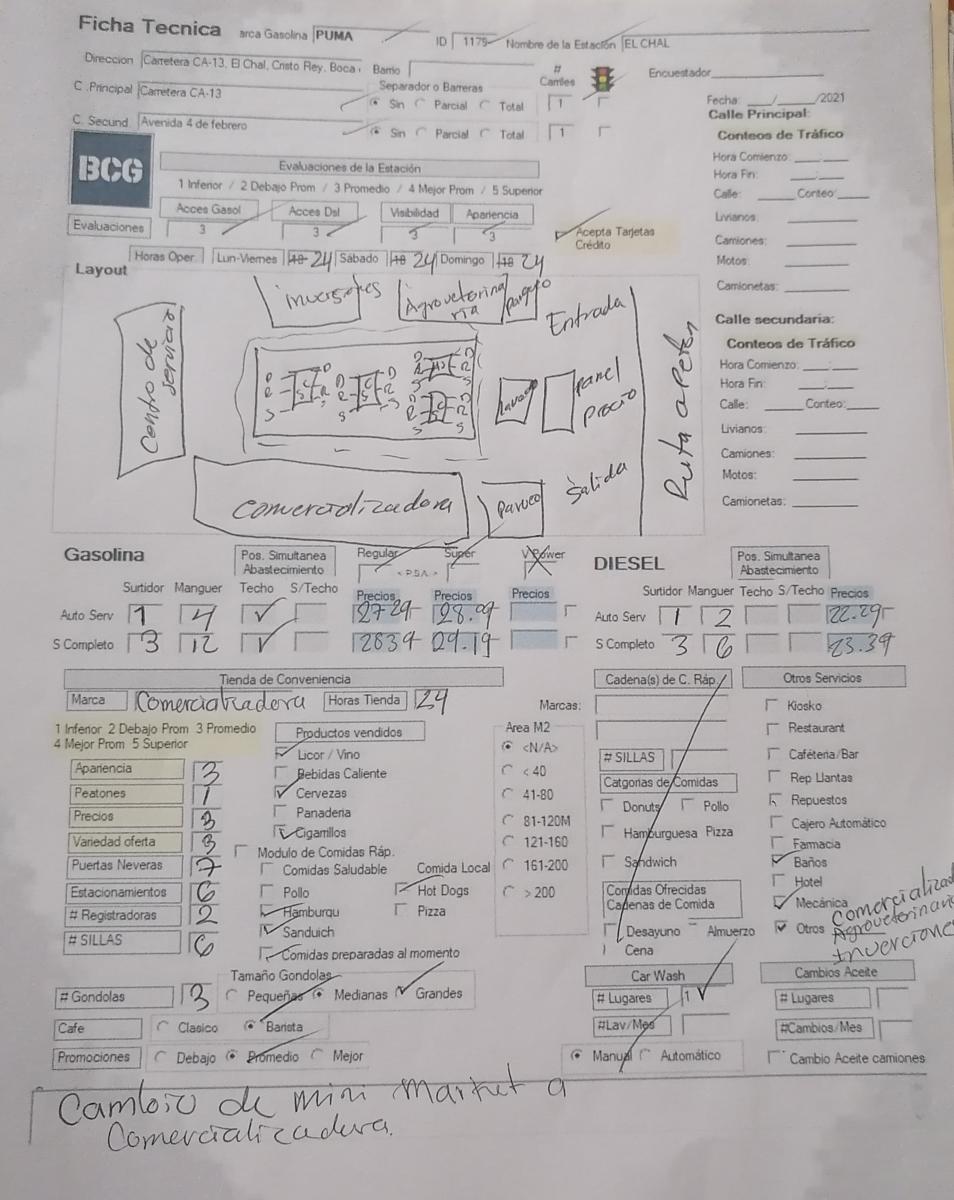 Ficha Tecnica arca Gasolina PUMA ID 1179 Nombre de la Estación EL CHAL
Direccion Carretera CA-13, El Chal, Cristo Rey, Boca Barrio # Carriles Encuestador
C .Principal Carretera CA-13 Separador o Barreras Sin Parcial Total 1
Fecha: ___/___/2021
C. Secund. Avenida 4 de febrero Sin Parcial Total 1
Calle Principal:
Conteos de Tráfico
Hora Comienzo: ___:___
Hora Fin: ___:___
Calle: Conteo:
Livianos:
Camiones:
Motos:
Camionetas:
BCG
Evaluaciones de la Estación
1 Inferior / 2 Debajo Prom / 3 Promedio / 4 Mejor Prom / 5 Superior
Acces Gasol Acces Dsl Visibilidad Apariencia
Evaluaciones 3 3 3 3 Acepta Tarjetas Crédito
Horas Oper. Lun-Viernes 18 24 Sábado 18 24 Domingo 18 24
Layout
inversiones Agroveterinaria parqueo Entrada
Centro de servicio
D R S S C R S D R S S C D R S
panel precio
Ruta a Peten
Comercializadora Parqueo Salida
Calle secundaria:
Conteos de Tráfico
Hora Comienzo: ___:___
Hora Fin: ___:___
Calle: Conteo:
Livianos:
Camiones:
Motos:
Camionetas:
Gasolina Pos. Simultanea Abastecimiento Regular Súper V-Power
<-P.S.A.->
Surtidor Manguer Techo S/Techo Precios Precios Precios
Auto Serv 1 4 27.29 28.09
S Completo 3 12 28.39 29.19
DIESEL Pos. Simultanea Abastecimiento
Surtidor Manguer Techo S/Techo Precios
Auto Serv 1 2 22.29
S Completo 3 6 23.39
Tienda de Conveniencia
Marca Comercializadora Horas Tienda 24
1 Inferior 2 Debajo Prom 3 Promedio
4 Mejor Prom 5 Superior
Apariencia 3
Peatones 1
Precios 3
Variedad oferta 3
Puertas Neveras 7
Estacionamientos 6
# Registradoras 2
# SILLAS 6
Productos vendidos
Licor / Vino
Bebidas Caliente
Cervezas
Panaderia
Cigarrillos
Modulo de Comidas Ráp.
Comidas Saludable Comida Local
Pollo Hot Dogs
Hamburqu Pizza
Sanduich
Comidas preparadas al momento
Area M2
<N/A>
< 40
41-80
81-120M
121-160
161-200
> 200
Cadena(s) de C. Ráp.
Marcas:
# SILLAS
Catgorias de Comidas
Donuts Pollo
Hamburguesa Pizza
Sandwich
Comidas Ofrecidas
Cadenas de Comida
Desayuno Almuerzo
Cena
Otros Servicios
Kiosko
Restaurant
Caféteria/Bar
Rep Llantas
Repuestos
Cajero Automático
Farmacia
Baños
Hotel
Mecánica
Otros Comercializado Agroveterinaria Inverciones
# Gondolas 3 Tamaño Gondolas Pequeñas Medianas Grandes
Cafe Clasico Barista
Promociones Debajo Promedio Mejor
Car Wash
# Lugares 1
#Lav/Mes
Manual Automático
Cambios Aceite
# Lugares
#Cambios/Mes
Cambio Aceite camiones
Cambio de mini Market a
Comercializadora.